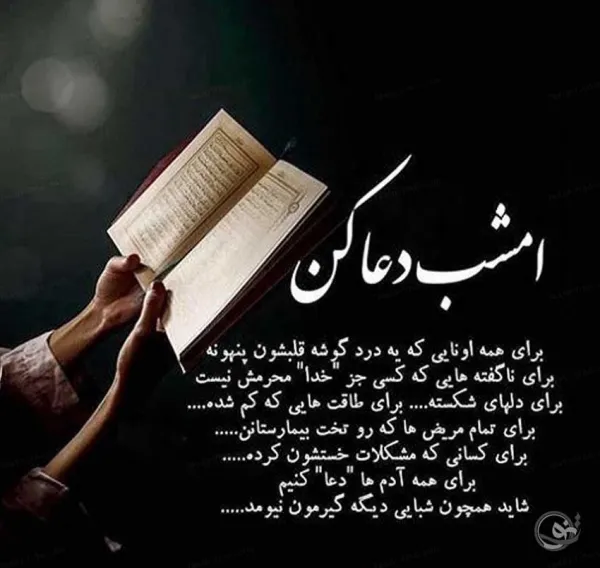 امشب دعا کن
برای همه اونایی که یه درد گوشه قلبشون پنهونه
برای ناگفته هایی که کسی جز "خدا" محرمش نیست
برای دلهای شکسته.... برای طاقت هایی که کم شده....
برای تمام مریض ها که رو تخت بیمارستانن.....
برای کسانی که مشکلات خستشون کرده.....
برای همه آدم ها "دعا" کنیم
شاید همچون شبایی دیگه گیرمون نیومد.....